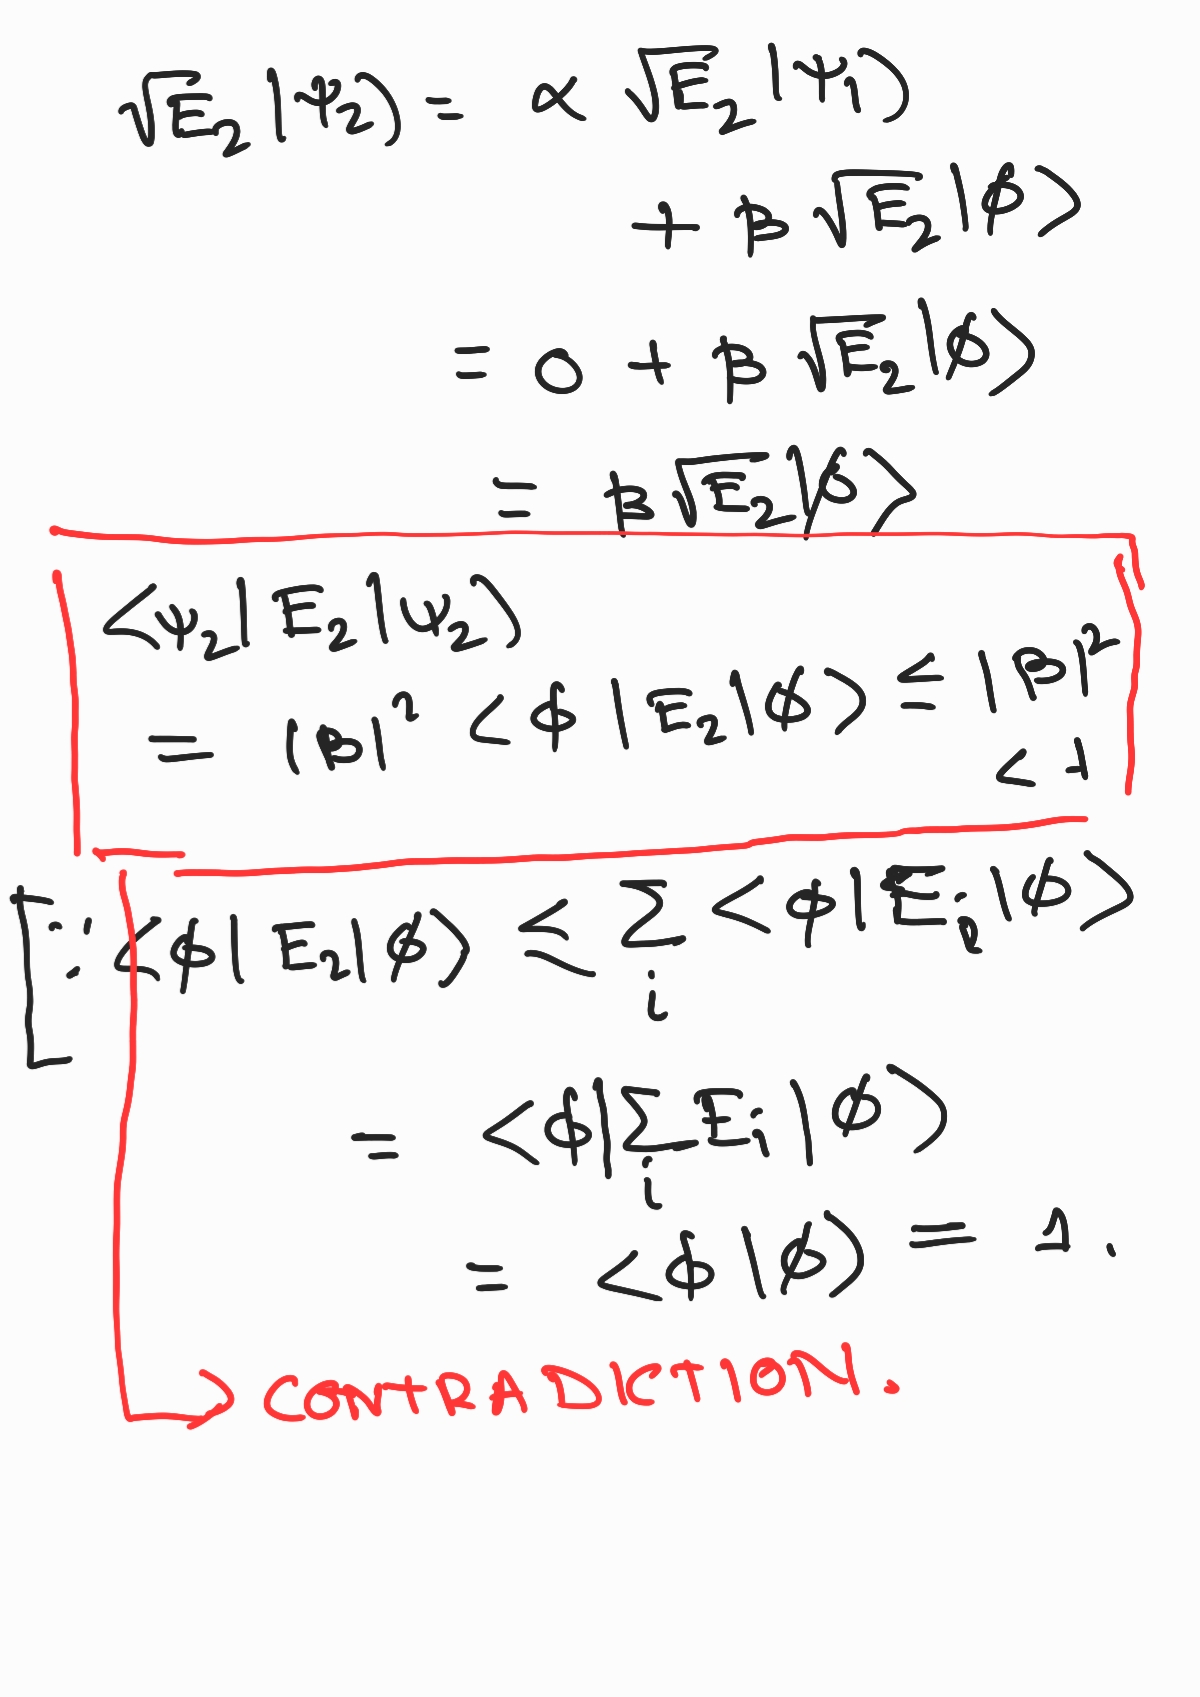 √E₂ |ψ₂⟩ = α √E₂ |ψ₁⟩
+ β √E₂ |ϕ⟩
= 0 + β √E₂ |ϕ⟩
= β √E₂ |ϕ⟩
<ψ₂| E₂ |ψ₂⟩
= |β|² <ϕ | E₂ |ϕ⟩ ≤ |β|²
< 1
[∵ <ϕ| E₂ |ϕ⟩ ≤ Σᵢ <ϕ| Eᵢ |ϕ⟩
= <ϕ| Σᵢ Eᵢ |ϕ⟩
= <ϕ |ϕ⟩ = 1.
CONTRADICTION.